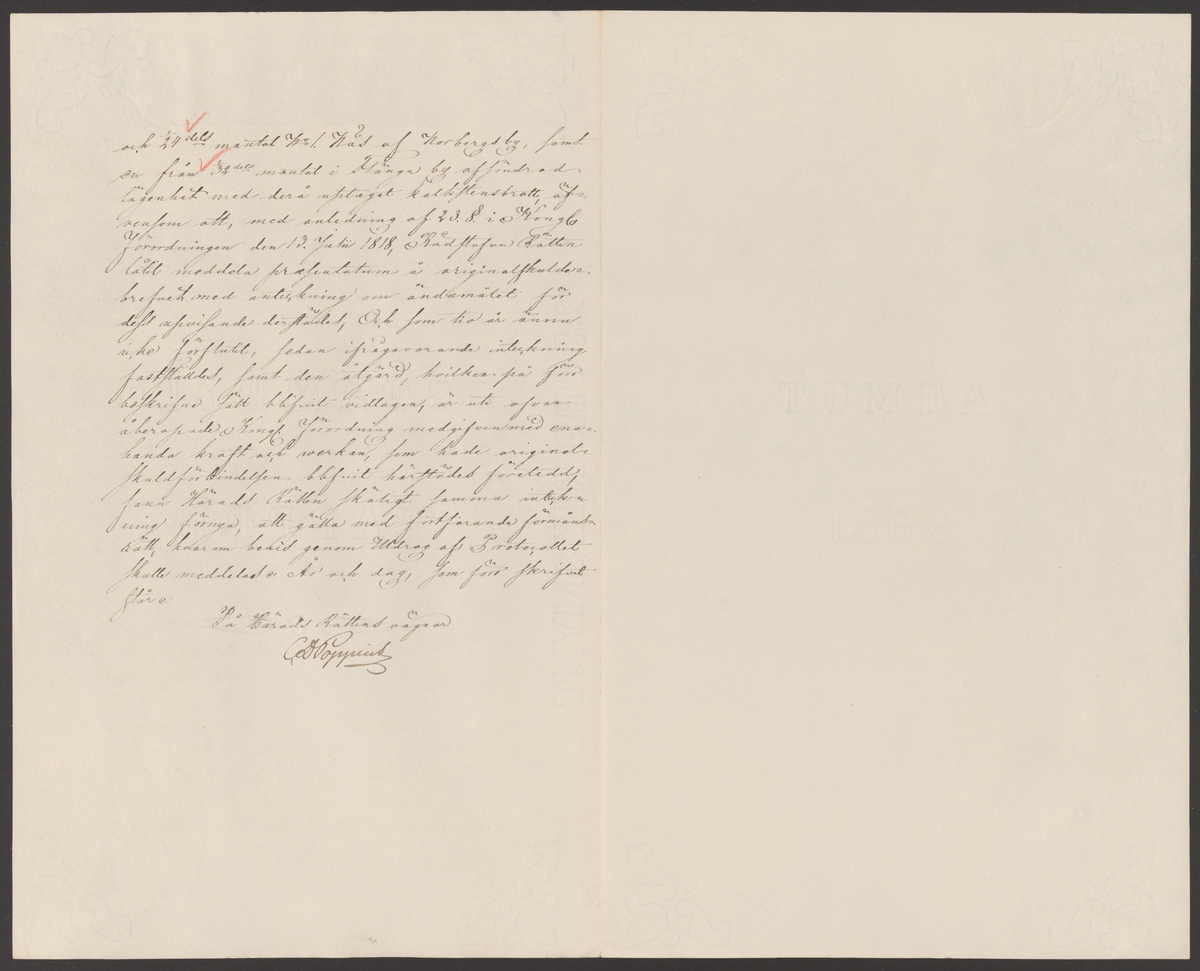 och 1/24 dels mantal N:o 1. Näs af Norbergs by, samt
en från 1/32 dels mantal i Stånga by afsöndrad
lägenhet med derå uptaget kalkstensbrott, äf-
vensom att, med anledning af 23. §. i Kongl
Förordningen den 13. Julii 1818, Rådstufvu Rätten
låtit meddela præsentatum å originalskulde-
brefvet med anteckning om ändamålet för
dess upvisande derstädes; Och som tio år ännu
icke förflutit, sedan ifrågavarande inteckning
fastställdes, samt den åtgärd, hvilken på före
beskrifne sätt blifvit vidtagen, är uti ofvan
åberopade Kongl. Förordning medgifven med enа-
handa kraft och werkan, som hade original-
skuldförbindelsen blifvit härstädes företedd;
fann Härads Rätten skäligt samma inteck-
ning förnya, att gälla med fortfarande förmåns-
rätt, hvarom bevis genom Utdrag af Protocollet
skulle meddelas. År och dag, som förr skrifvit
står.
På Härads Rättens vägnar
CDPoppius